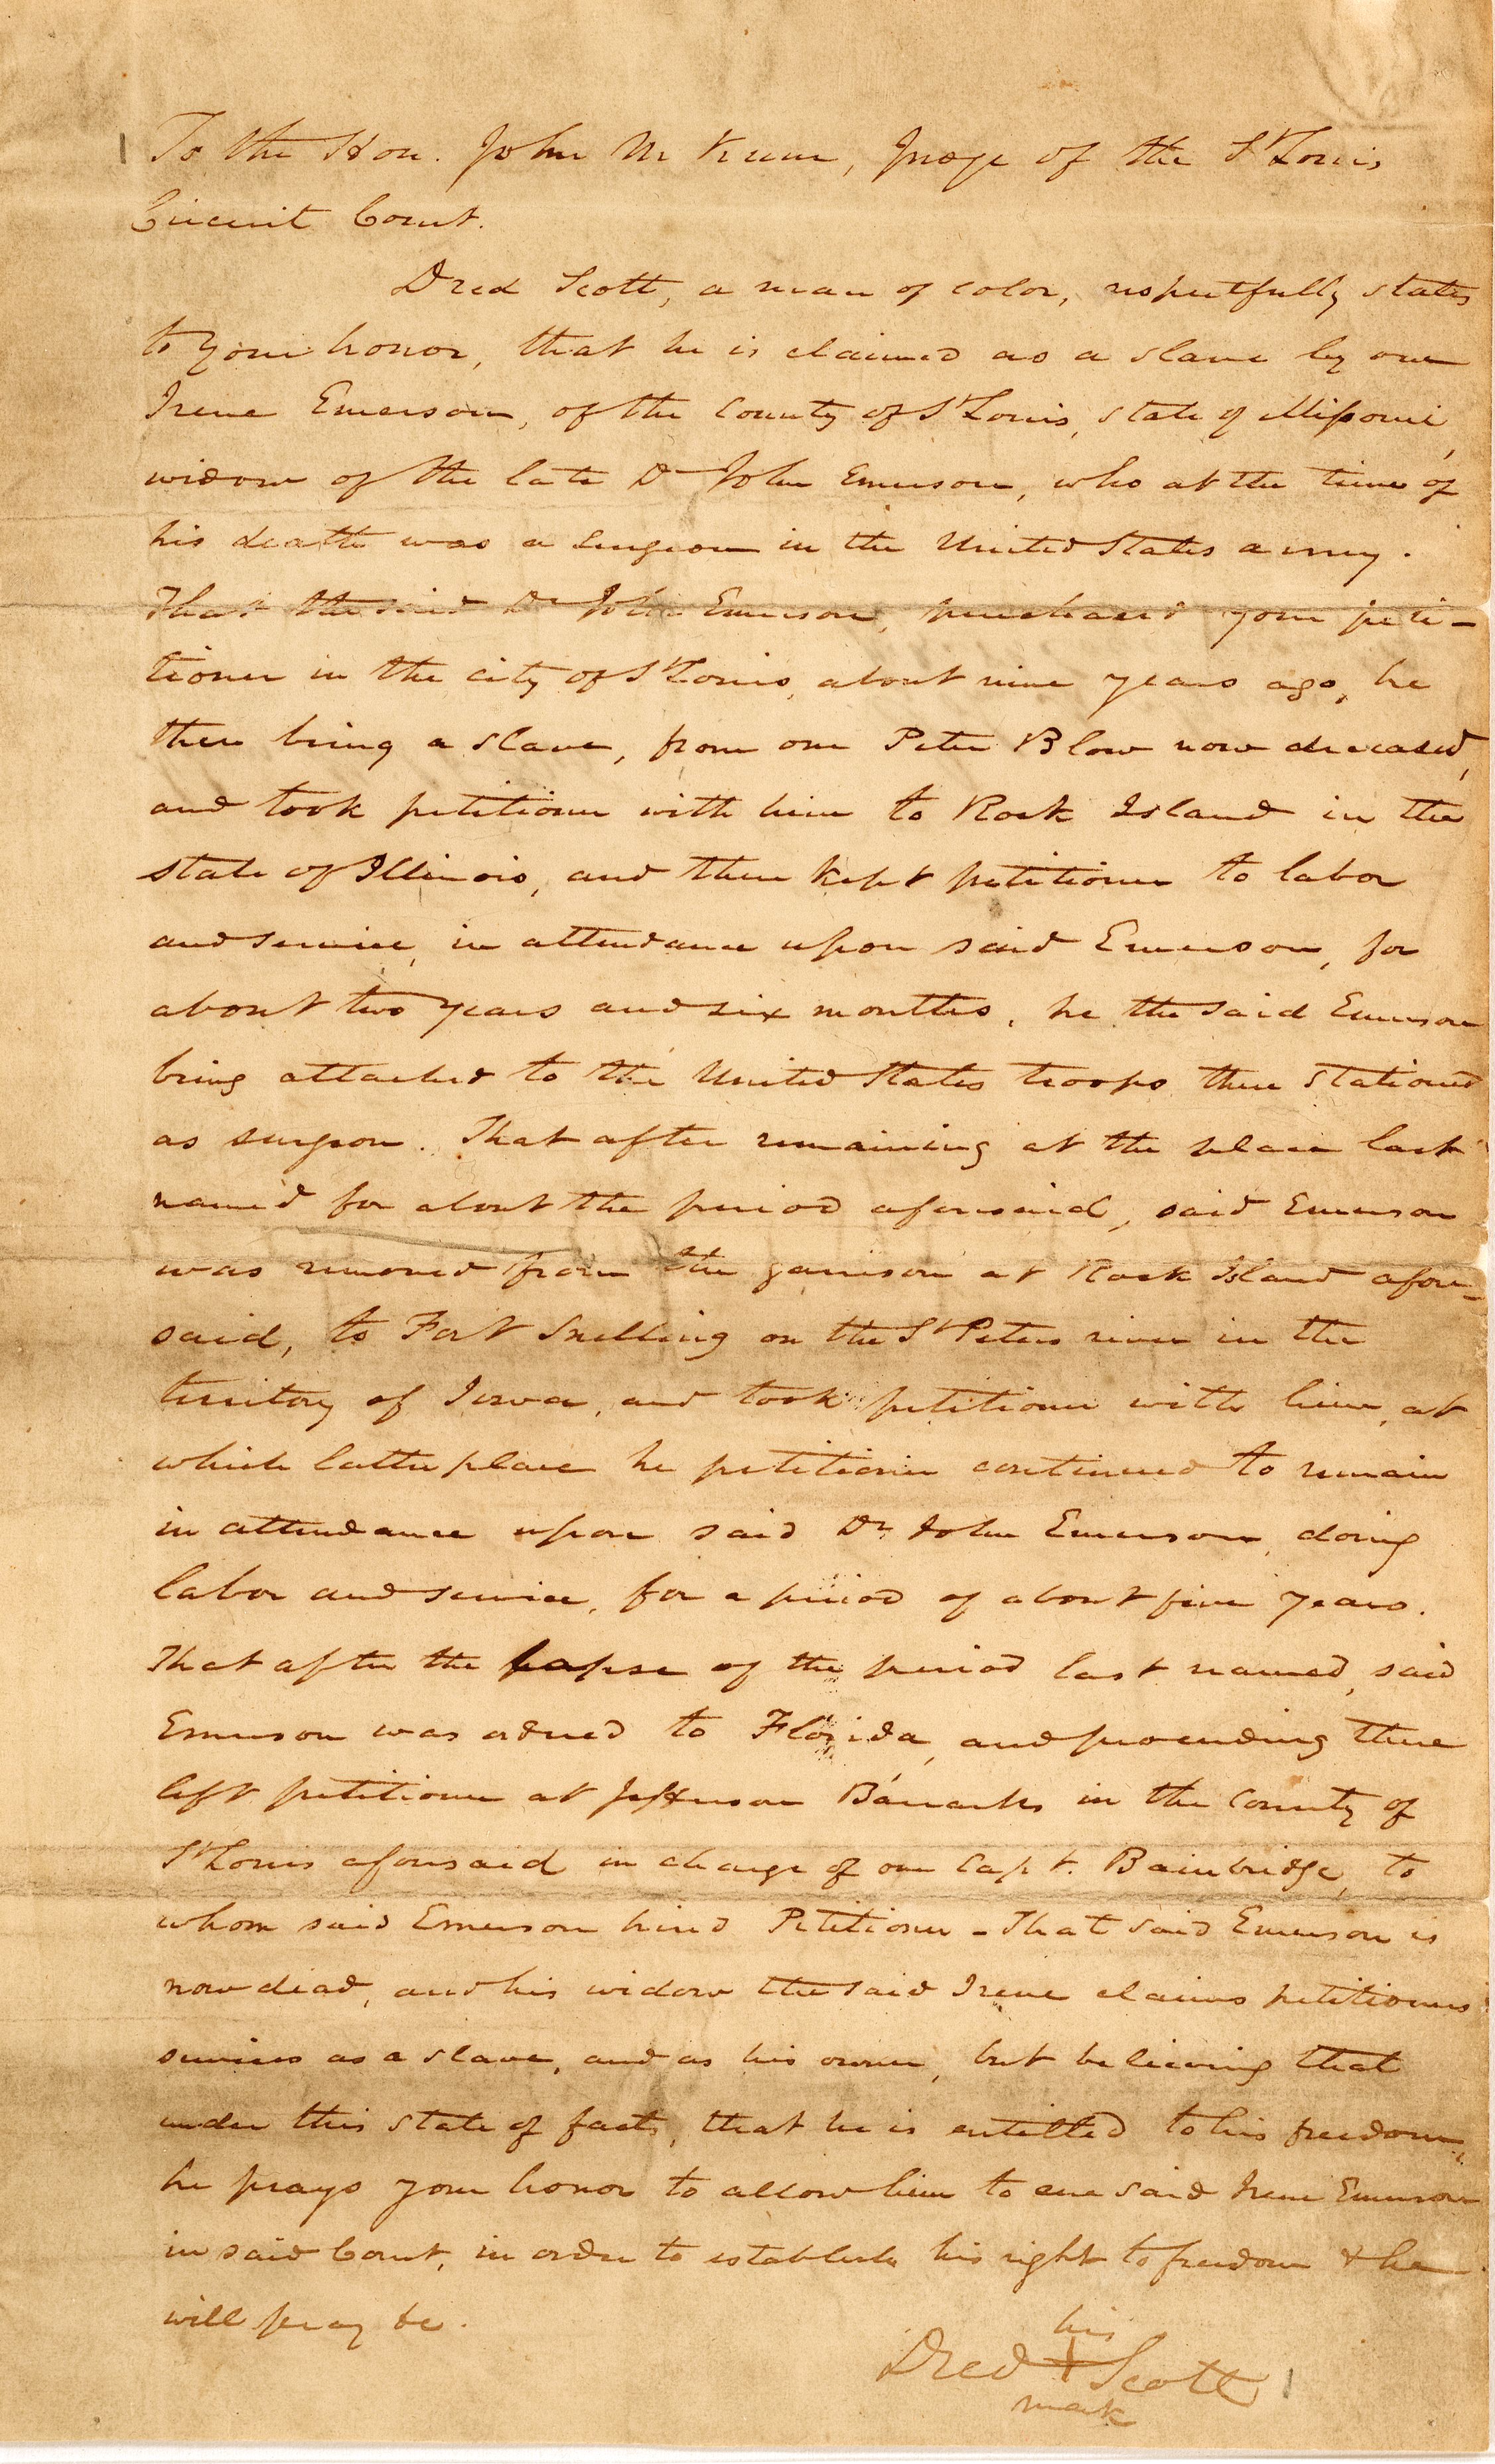 To the Hon. John M Krum, Judge of the St Louis
Circuit Court.
Dred Scott, a man of color, respectfully states
to your honor, that he is claimed as a slave by one
Irene Emerson, of the County of St Louis, state of Missouri,
widow of the late Dr John Emerson, who at the time of
his death was a surgeon in the United States army.
That the said Dr John Emerson, purchased your peti-
tioner in the city of St Louis, about nine years ago, he
then being a slave, from one Peter Blow now deceased,
and took petitioner with him to Rock Island in the
state of Illinois, and there kept petitioner to labor
and service, in attendance upon said Emerson, for
about two years and six months, he the said Emerson
being attached to the United States troops there stationed
as surgeon. That after remaining at the place last
named for about the period aforesaid, said Emerson
was removed from the garrison at Rock Island afore-
said, to Fort Snelling on the St Peters river in the
territory of Iowa, and took petitioner with him, at
which latter place he petitioner continued to remain
in attendance upon said Dr John Emerson, doing
labor and service, for a period of about five years.
That after the lapse of the period last named, said
Emerson was ordered to Florida, and proceeding there
left petitioner at Jefferson Barracks in the County of
St Louis aforesaid in charge of one Capt. Bainbridge, to
whom said Emerson hired Petitioner - That said Emerson is
now dead, and his widow the said Irene claims petitioners
services as a slave, and as his owner, but believing that
under this state of facts, that he is entitled to his freedom,
he prays your honor to allow him to sue said Irene Emerson
in said Court, in order to establish his right to freedom & he
will pray &c.
his
Dred + Scott
mark